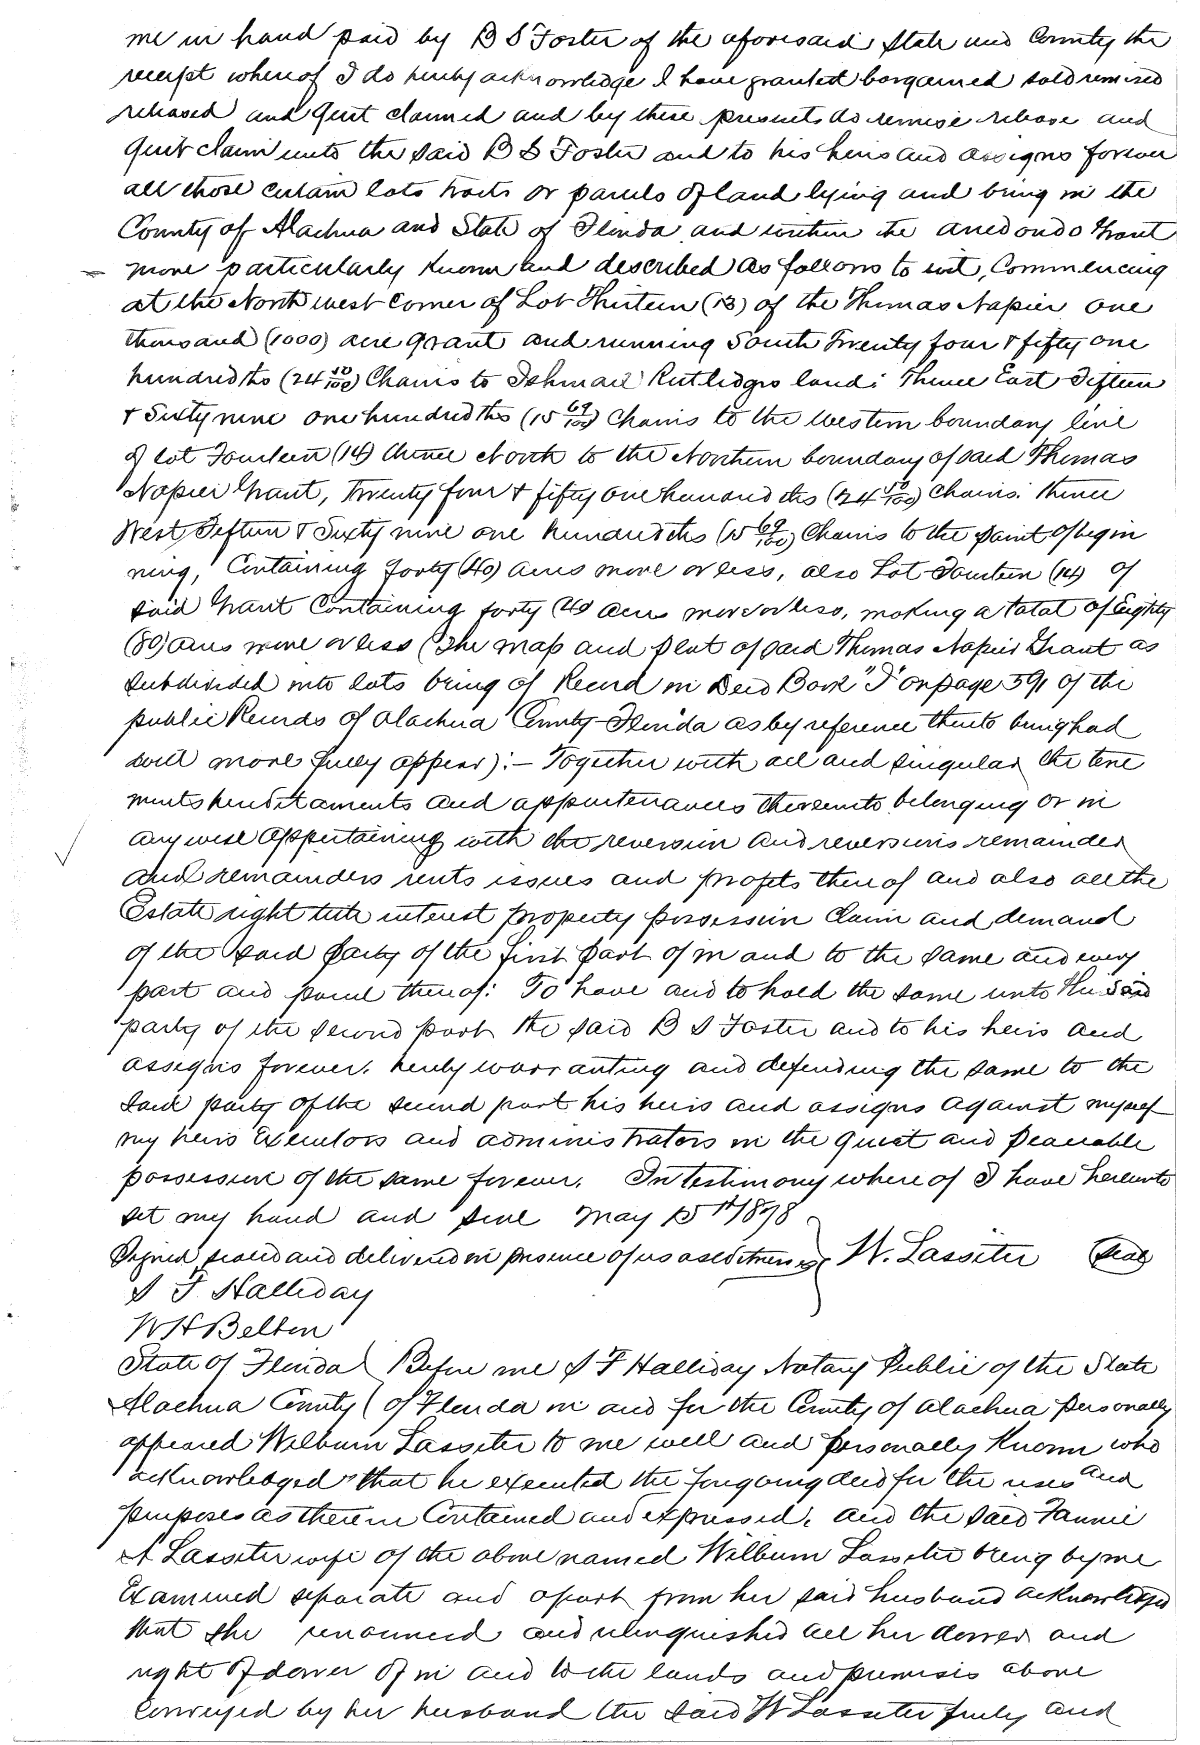 me in hand paid by B S Foster of the aforesaid State and County the
receipt whereof I do hereby acknowledge I have granted bargained sold remised
released and quit claimed and by these presents do remise release and
quit claim unto the said B S Foster and to his heirs and assigns forever
all those certain lots tracts or parcels of land lying and being in the
County of Alachua and State of Florida and within the Arredondo Grant
more particularly known and described as follows to wit, Commencing
at the North west corner of Lot Thirteen (13) of the Thomas Napier one
thousand (1000) acre grant and running South Twenty four & fifty one
hundredths (24 50/100) Chains to Ishmael Rutledges land: Thence East Fifteen
& Sixty nine one hundredths (15 69/100) Chains to the Western boundary line
of lot Fourteen (14) thence North to the Northern boundary of said Thomas
Napier Grant, Twenty four & fifty one hundredths (24 50/100) Chains: thence
West Fifteen & Sixty nine one hundredths (15 69/100) Chains to the point of begin
ning, Containing forty (40) acres more or less, also Lot Fourteen (14) of
said Grant Containing forty (40 acres more or less, making a total of Eighty
(80) acres more or less (The map and plat of said Thomas Napier Grant as
subdivided into lots being of Record in Deed Book "J" on page 591 of the
public Records of Alachua County Florida as by reference thereto being had
will more fully appear):- Together with all and singular the tene
ments hereditaments and appurtenances thereunto belonging or in
anywise appertaining with the reversion and reversions remainder
and remainders rents issues and profits thereof and also all the
Estate right title interest property possession claim and demand
of the said party of the first part of in and to the same and every
part and parcel thereof: To have and to hold the same unto the said
party of the second part the said B S Foster and to his heirs and
assigns forever. hereby warranting and defending the same to the
said party of the second part his heirs and assigns against myself
my heirs Executors and administrators in the quiet and peaceable
possession of the same forever. In testimony where of I have hereunto
set my hand and seal May 15th 1878
Signed sealed and delivered in presence of us as witnesses W. Lassiter (Seal)
S F Halliday
W H Belton
State of Florida ) Before me S F Halliday Notary Public of the State
Alachua County ( of Florida in and for the County of Alachua personally
appeared Wilburn Lassiter to me well and personally known who
acknowledged that he executed the foregoing deed for the uses and
purposes as therein Contained and expressed. and the said Fannie
A Lassiter wife of the above named Wilburn Lassiter being by me
Examined separate and apart from her said husband acknowledged
that she renounced and relinquished all her dower and
right of dower of in and to the lands and premises above
Conveyed by her husband the said W Lassiter freely and